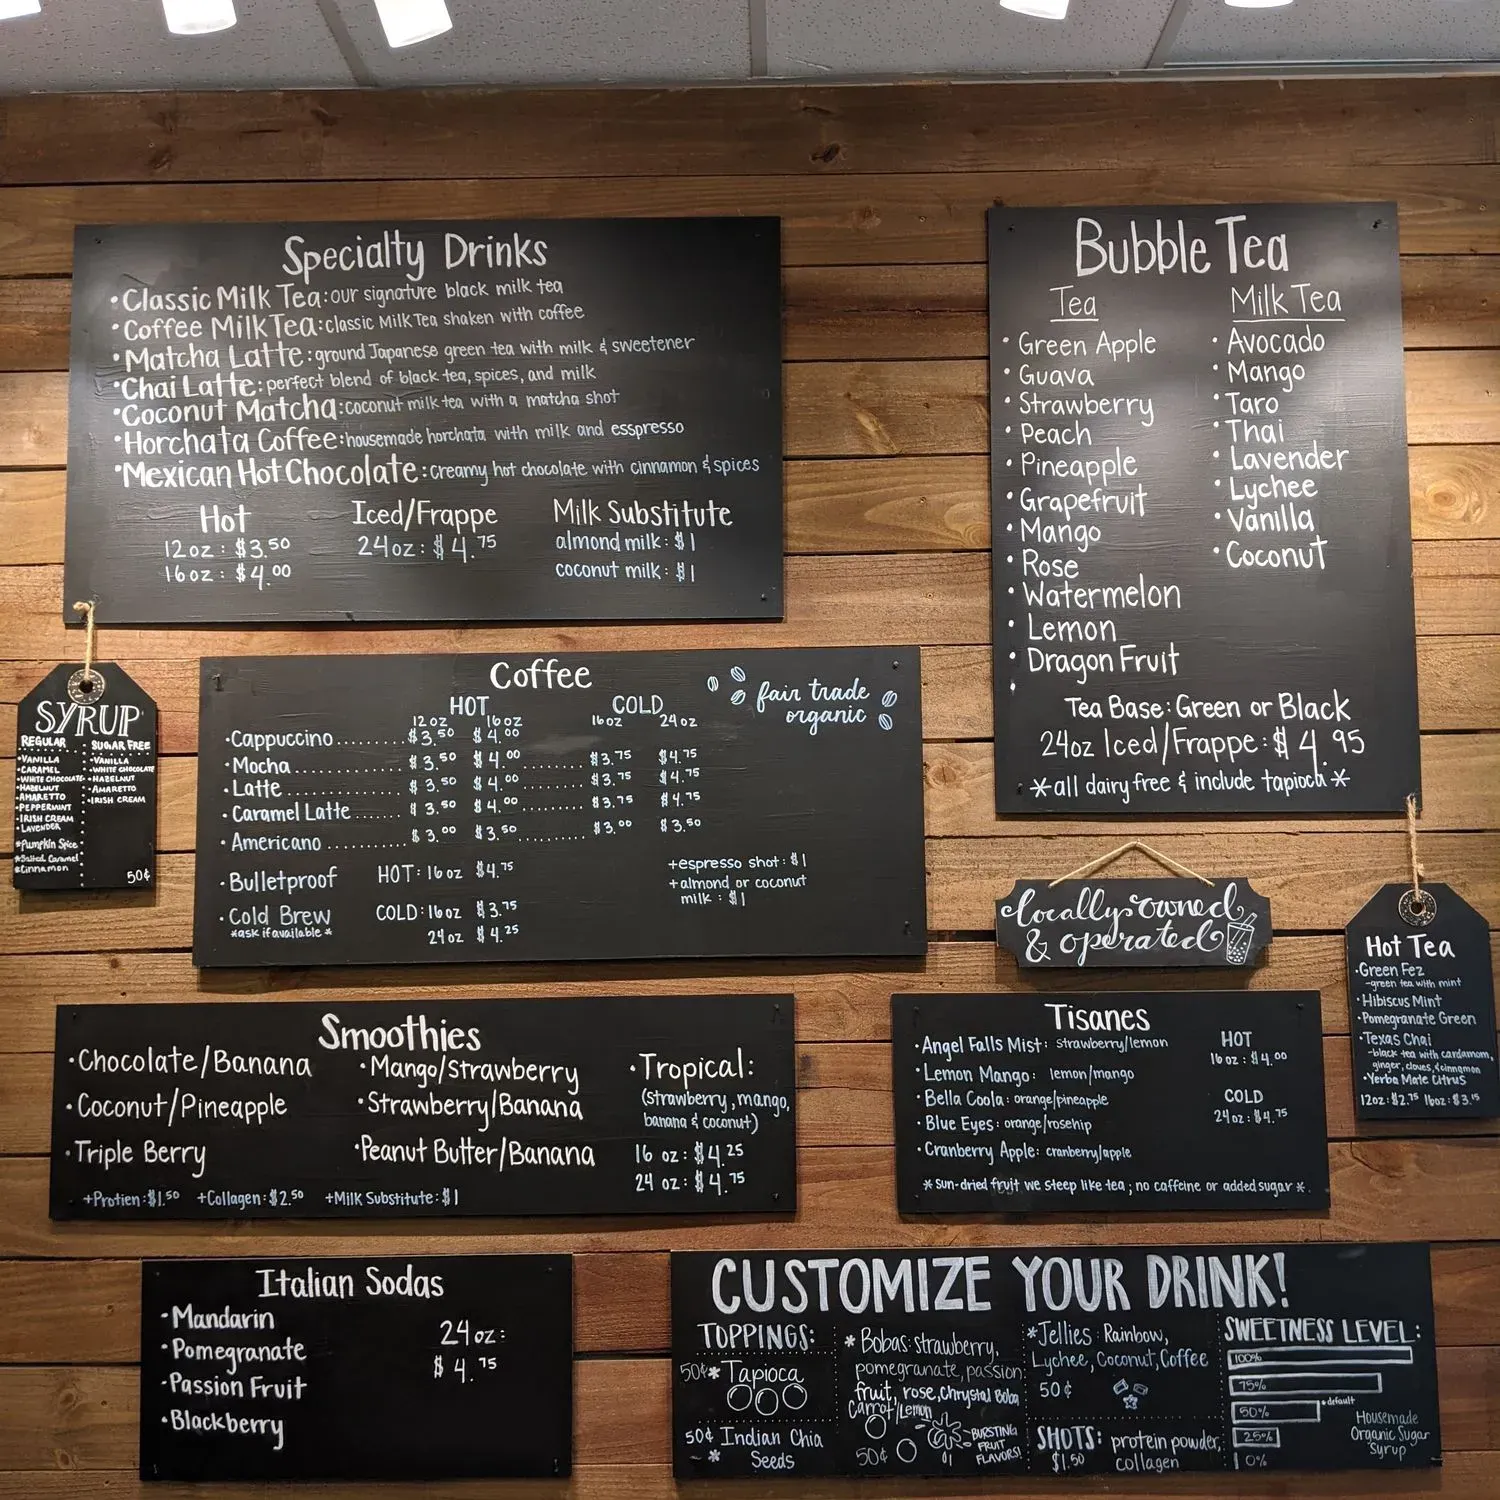 Specialty Drinks
•Classic Milk Tea: our signature black milk tea
•Coffee Milk Tea: classic Milk Tea shaken with coffee
•Matcha Latte: ground Japanese green tea with milk & sweetener
•Chai Latte: perfect blend of black tea, spices, and milk
•Coconut Matcha: coconut milk tea with a matcha shot
•Horchata Coffee: housemade horchata with milk and esspresso
•Mexican Hot Chocolate: creamy hot chocolate with cinnamon & spices
Hot Iced/Frappe Milk Substitute
12oz: $3.50 24oz: $4.75 almond milk: $1
16oz: $4.00 coconut milk: $1
Bubble Tea
Tea Milk Tea
• Green Apple • Avocado
• Guava • Mango
• Strawberry • Taro
• Peach • Thai
• Pineapple • Lavender
• Grapefruit • Lychee
• Mango • Vanilla
• Rose • Coconut
• Watermelon
• Lemon
• Dragon Fruit
Tea Base: Green or Black
24oz Iced/Frappe: $4.95
*all dairy free & include tapioca*
SYRUP
REGULAR SUGAR FREE
•VANILLA •VANILLA
•CARAMEL •WHITE CHOCOLATE
•WHITE CHOCOLATE •HAZELNUT
•HAZELNUT •AMARETTO
•AMARETTO •IRISH CREAM
•PEPPERMINT
•IRISH CREAM
•LAVENDER
*Pumpkin Spice
*Salted Caramel
*Cinnamon 50¢
Coffee
fair trade
organic
HOT COLD
12oz 16oz 16oz 24oz
•Cappuccino......... $3.50 $4.00
•Mocha.............. $3.50 $4.00........ $3.75 $4.75
•Latte.............. $3.50 $4.00........ $3.75 $4.75
•Caramel Latte...... $3.50 $4.00........ $3.75 $4.75
•Americano.......... $3.00 $3.50........ $3.00 $3.50
•Bulletproof HOT: 16oz $4.75
•Cold Brew COLD: 16oz $3.75
*ask if available* 24oz $4.25
+espresso shot: $1
+almond or coconut
milk: $1
locally owned
& operated
Hot Tea
•Green Fez
-green tea with mint
•Hibiscus Mint
•Pomegranate Green
•Texas Chai
-black tea with cardamom,
ginger, cloves, & cinnamon
•Yerba Mate Citrus
12oz: $2.75 16oz: $3.15
Smoothies
•Chocolate/Banana •Mango/Strawberry •Tropical:
•Coconut/Pineapple •Strawberry/Banana (strawberry, mango,
banana & coconut)
•Triple Berry •Peanut Butter/Banana 16 oz: $4.25
24 oz: $4.75
+Protien: $1.50 +Collagen: $2.50 +Milk Substitute: $1
Tisanes
•Angel Falls Mist: strawberry/lemon
•Lemon Mango: lemon/mango
•Bella Coola: orange/pineapple
•Blue Eyes: orange/rosehip
•Cranberry Apple: cranberry/apple
HOT
16oz: $4.00
COLD
24oz: $4.75
*sun-dried fruit we steep like tea; no caffeine or added sugar*
Italian Sodas
•Mandarin
•Pomegranate
•Passion Fruit
•Blackberry
24oz:
$4.75
CUSTOMIZE YOUR DRINK!
TOPPINGS:
50¢* Tapioca
50¢ Indian Chia
* Seeds
*Bobas: strawberry,
pomegranate, passion
fruit, rose, Chrystal Boba
Carrot/Lemon
50¢
BURSTING
FRUIT
FLAVORS!
*Jellies: Rainbow,
Lychee, Coconut, Coffee
50¢
SHOTS: protein powder,
$1.50 collagen
SWEETNESS LEVEL:
100%
75%
50% •default
25%
0%
Housemade
Organic Sugar
Syrup